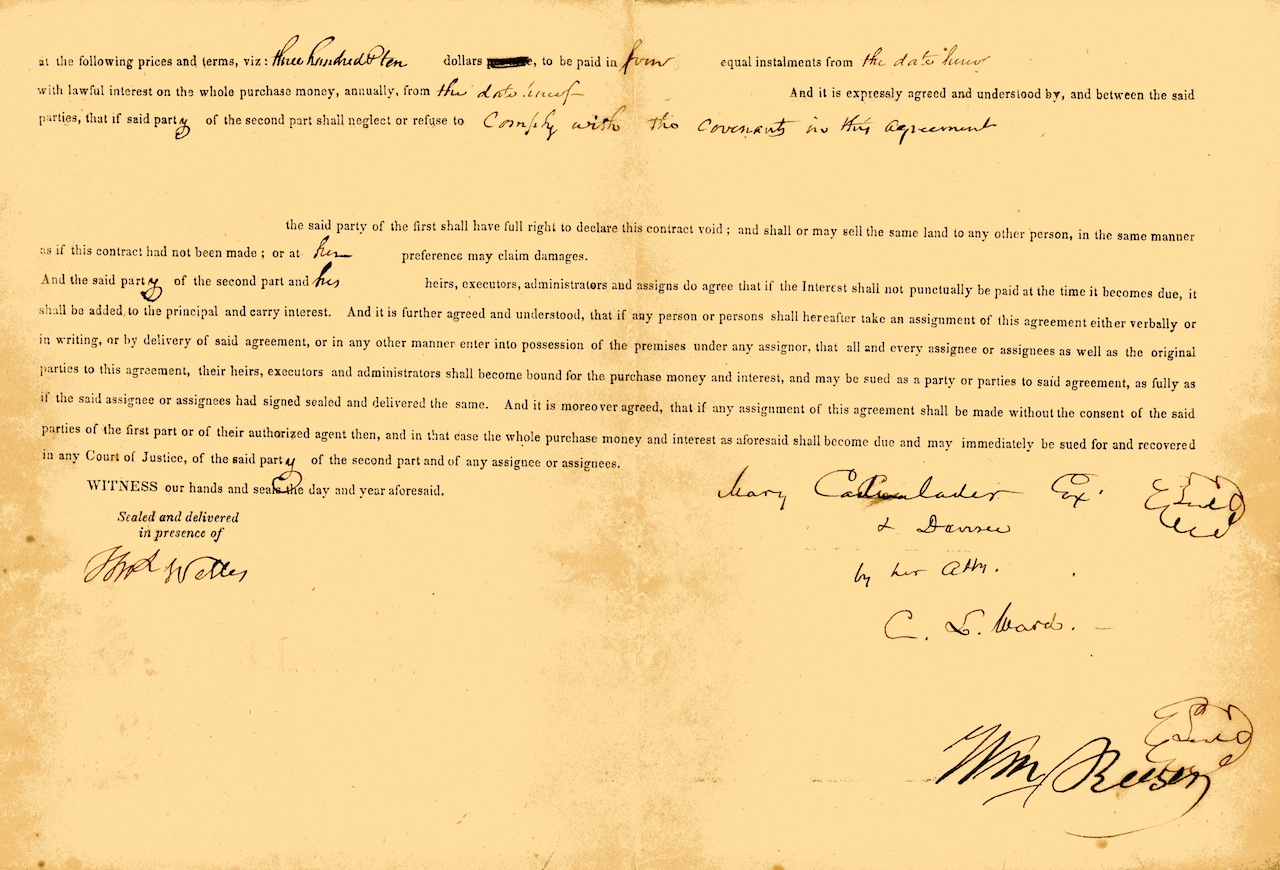 at the following prices and terms, viz: three hundred & ten dollars, to be paid in four equal instalments from the date hereof
with lawful interest on the whole purchase money, annually, from the date hereof And it is expressly agreed and understood by, and between the said
parties, that if said party of the second part shall neglect or refuse to Comply with the covenants in this agreement
the said party of the first shall have full right to declare this contract void; and shall or may sell the same land to any other person, in the same manner
as if this contract had not been made; or at her preference may claim damages.
And the said party of the second part and his heirs, executors, administrators and assigns do agree that if the Interest shall not punctually be paid at the time it becomes due, it
shall be added to the principal and carry interest. And it is further agreed and understood, that if any person or persons shall hereafter take an assignment of this agreement either verbally or
in writing, or by delivery of said agreement, or in any other manner enter into possession of the premises under any assignor, that all and every assignee or assignees as well as the original
parties to this agreement, their heirs, executors and administrators shall become bound for the purchase money and interest, and may be sued as a party or parties to said agreement, as fully as
if the said assignee or assignees had signed sealed and delivered the same. And it is moreover agreed, that if any assignment of this agreement shall be made without the consent of the said
parties of the first part or of their authorized agent then, and in that case the whole purchase money and interest as aforesaid shall become due and may immediately be sued for and recovered
in any Court of Justice, of the said party of the second part and of any assignee or assignees.
WITNESS our hands and seals the day and year aforesaid.
Sealed and delivered
in presence of
Mary Cadwalader Ex.
& Devisee
by her Atty.
C. L. Ward.
Wm